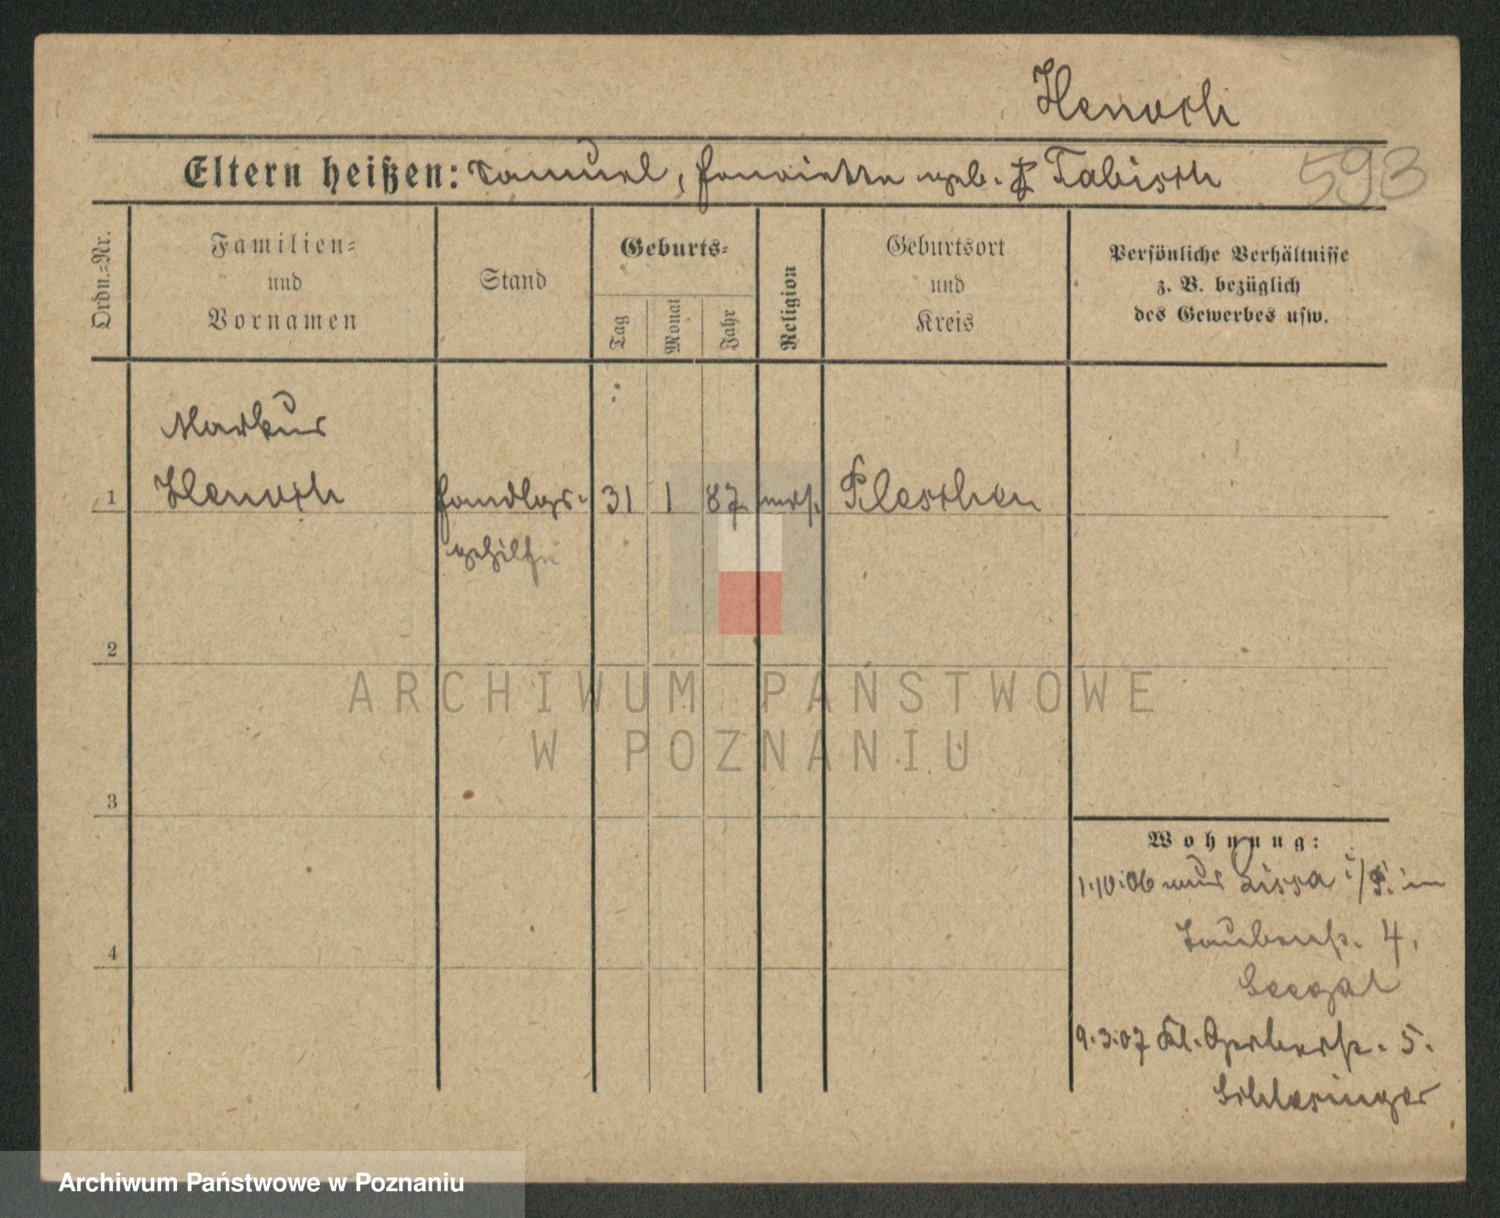 Henoch
Eltern heißen: Samuel, Henriette geb. Tabisch
593
Ordn.-Nr.
Familien-
und
Vornamen
Stand
Geburts-
Tag
Monat
Jahr
Religion
Geburtsort
und
Kreis
Persönliche Verhältnisse
z. B. bezüglich
des Gewerbes usw.
Markus
1 Henoch Handlgs- 31 1 87 mos. Pleschen
gehilfe
2
3
4
Wohnung:
1.10.06 aus Lissa i/P. in
Taubenstr. 4,
Seegal
9.3.07 Kl. Gerberstr. 5.
Schlesinger
ARCHIWUM PAŃSTWOWE
W POZNANIU
Archiwum Państwowe w Poznaniu